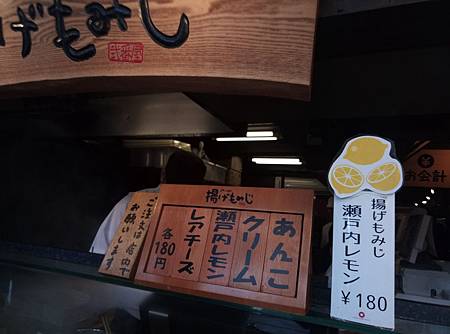 揚げもみじ
ご注文は店内で
お願いします
揚げもみじ
あんこ
クリーム
瀬戸内レモン
レアチーズ
各180円
揚げもみじ
瀬戸内レモン
¥180
¥
お会計